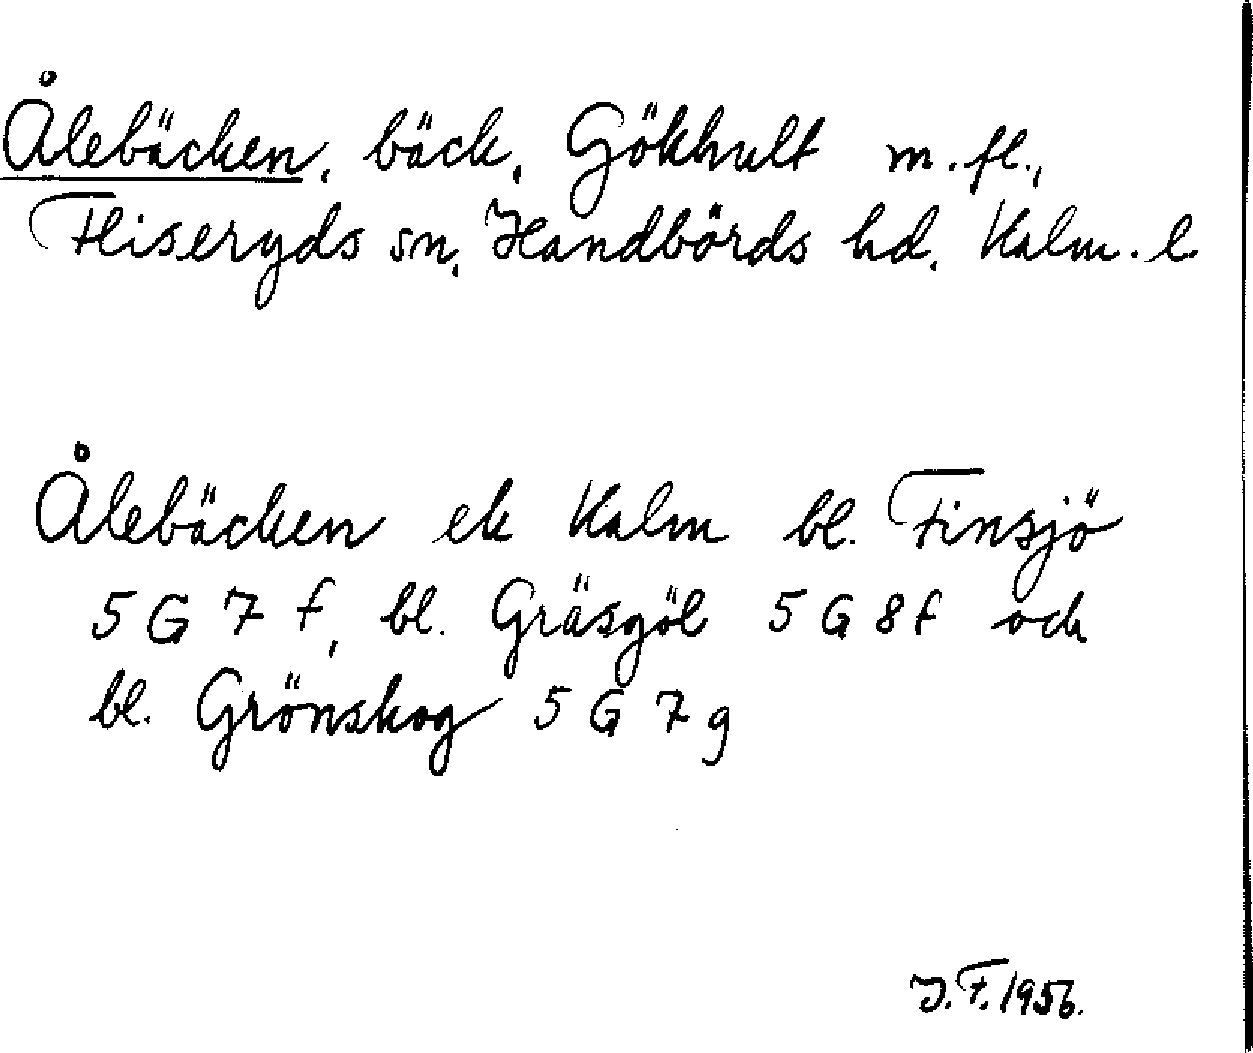 Ålebäcken, bäck, Gökhult m.fl.,
Fliseryds sn, Handbörds hd, Kalm. l.
Ålebäcken ek Kalm bl. Finsjö
5 G 7 f, bl. Gräsgöl 5 G 8 f och
bl. Grönskog 5 G 7 g
J.F. 1956.